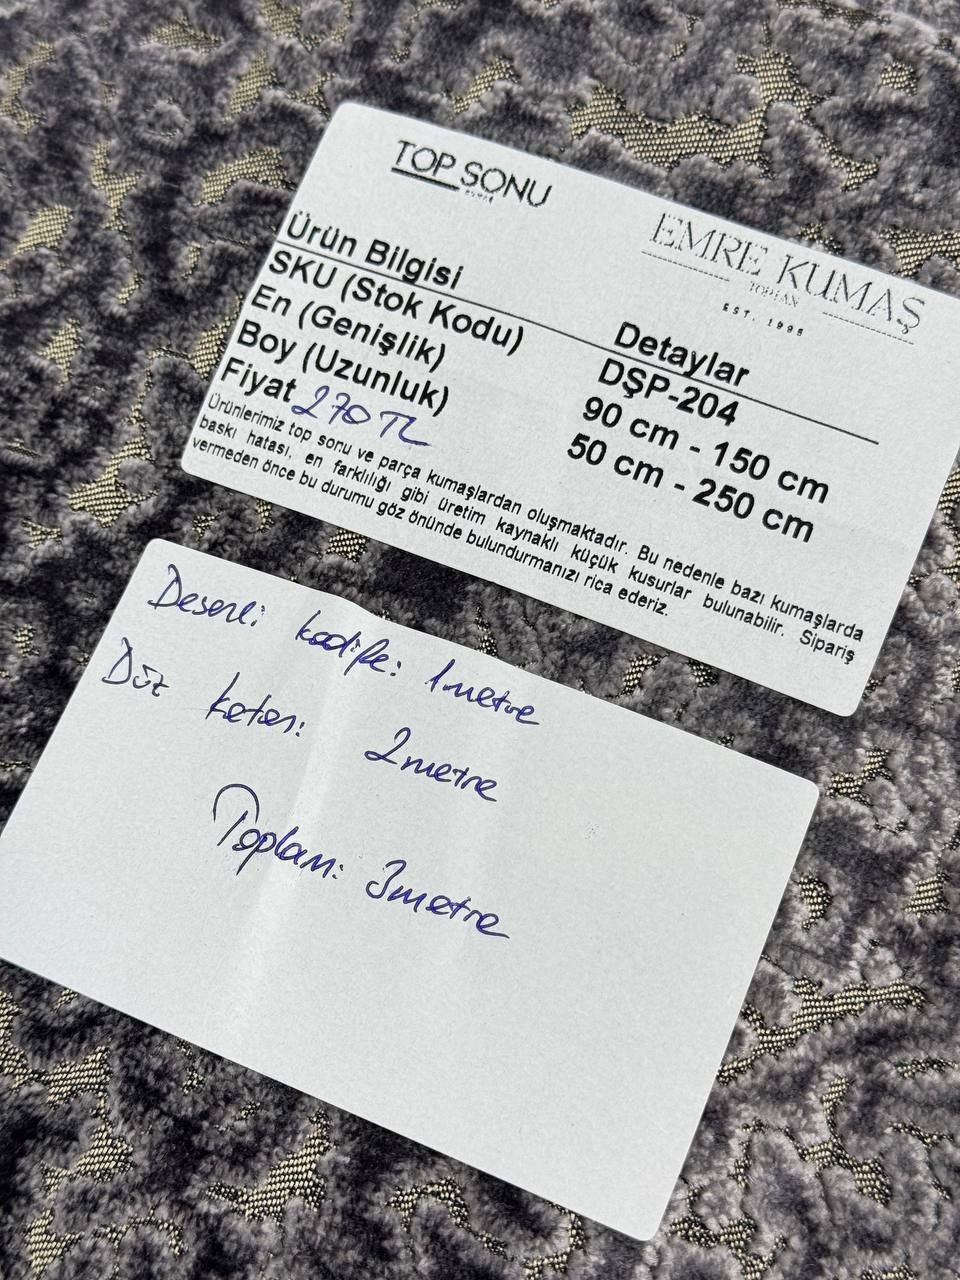 TOP SONU
KUMAŞ
EMRE KUMAŞ
TOPTAN
EST. 1995
Ürün Bilgisi Detaylar
SKU (Stok Kodu) DŞP-204
En (Genişlik) 90 cm - 150 cm
Boy (Uzunluk) 50 cm - 250 cm
Fiyat 270 TL
Ürünlerimiz top sonu ve parça kumaşlardan oluşmaktadır. Bu nedenle bazı kumaşlarda
baskı hatası, en farklılığı gibi üretim kaynaklı küçük kusurlar bulunabilir. Sipariş
vermeden önce bu durumu göz önünde bulundurmanızı rica ederiz.
Desenli kadife: 1 metre
Düz keten: 2 metre
Toplam: 3 metre